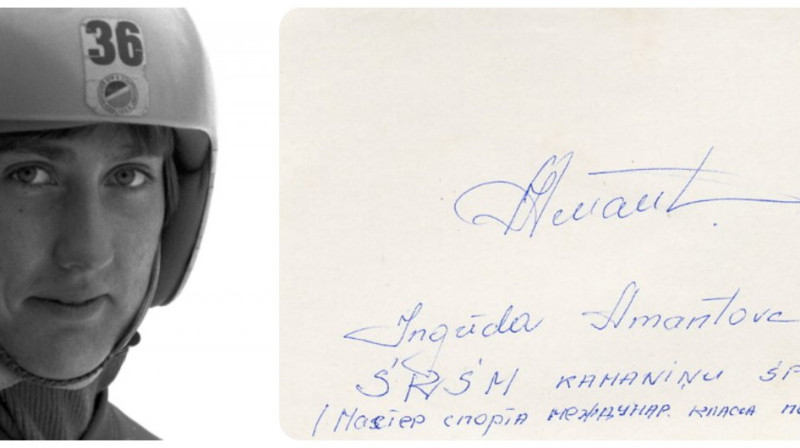 36
Amant.
Ingrīda Amantova
ŠRSM KAMANIŅU
/ Мастер спорта междунар. класса по